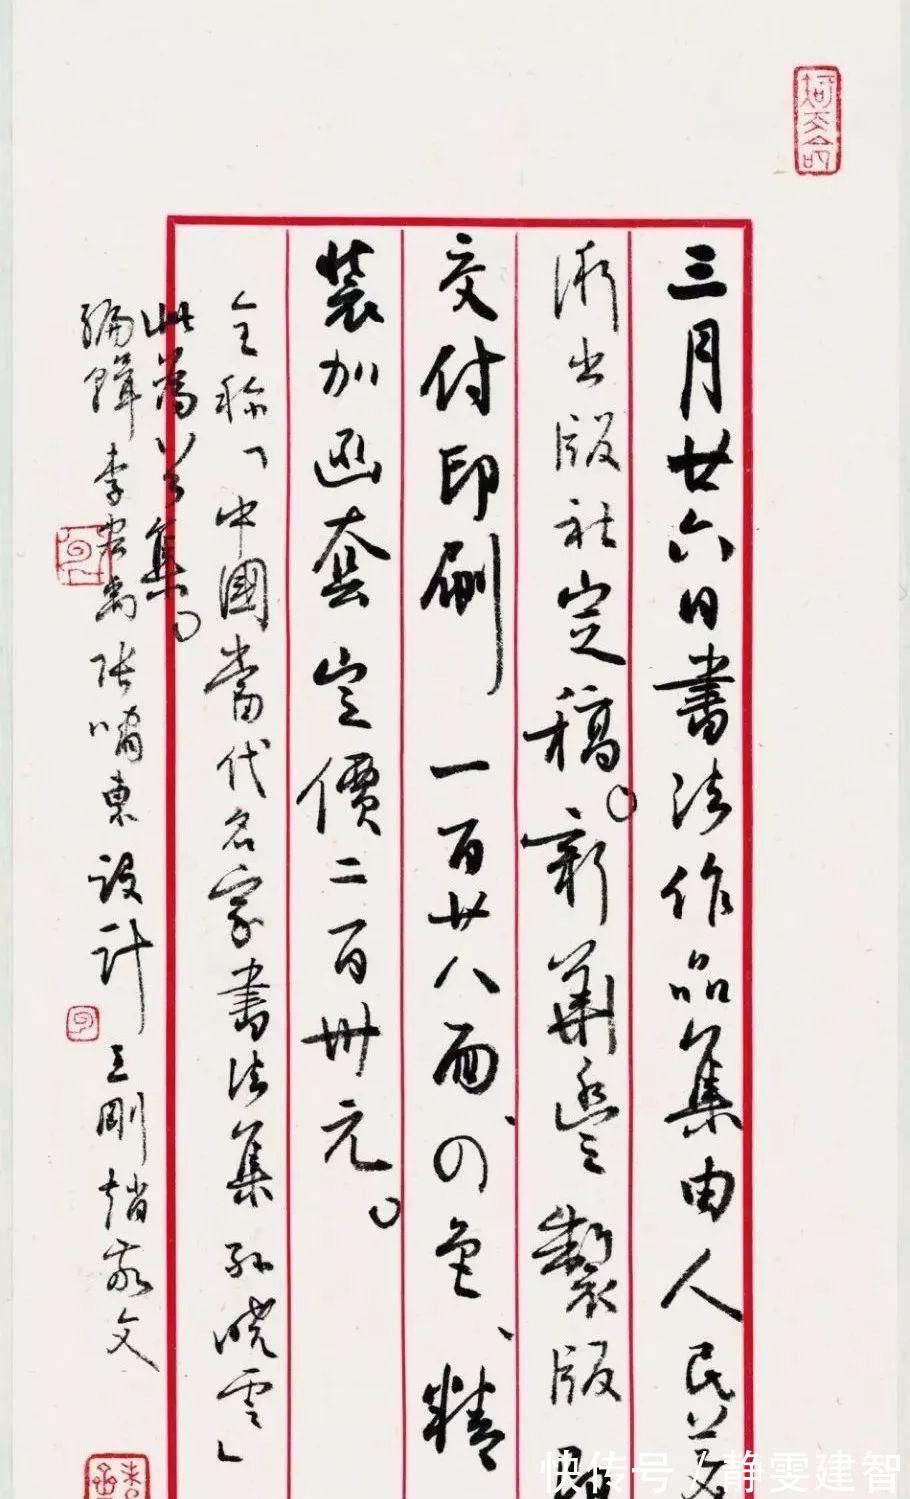 三月廿六日書法作品集由人民美
術出版社定稿。新華豐製版
交付印刷 一百廿八面、四色、精
裝加函套 定價二百卅元。
全稱「中國當代名家書法集 孫曉雲」
此為八字集。
編輯 李宏禹 張嘯東 設計 王剛 趙
文
快传号/静雯建智